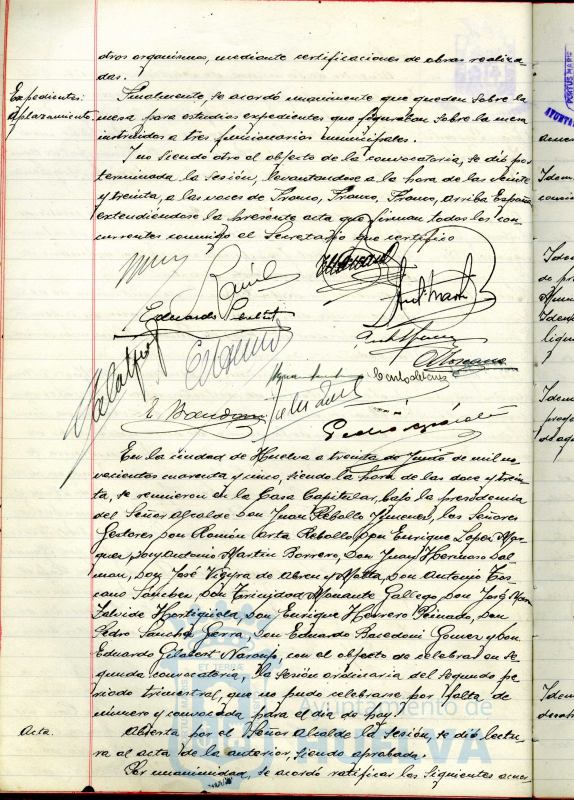 otros organismos, mediante certificaciones de obras realiza-
das.
Expedientes:
Aplazamiento.
Finalmente, se acordó unanimemente que queden sobre la
mesa para estudios expedientes que figuraban sobre la mesa
instruidos a tres funcionarios municipales.
Y no siendo otro el objeto de la convocatoria, se dió por
terminada la sesión, levantandose a la hora de las veinte
y treinta, a las voces de Franco, Franco, Franco, Arriba España
extendiéndose la presente acta que firman todos los con-
currentes conmigo el Secretario que certifico
Eduardo
Pedro
En la ciudad de Huelva a treinta de Junio de mil no-
vecientos cuarenta y cinco, siendo la hora de las doce y trein-
ta, se reunieron en la Casa Capitular, bajo la presidencia
del Señor Alcalde Don Juan Rebollo Jimenez, los Señores
Gestores Don Ramón Arta Rebollo, Don Enrique Lopez Mar-
quez, Don Antonio Martin Borrero, Don Juan Hermoso Dal-
mau, Don José Vieyra de Abreu y Motta, Don Antonio Tos-
cano Sanchez, Don Trinidad Gallego, Don José
Hortigüela, Don Enrique Herrero Peinado, Don
Pedro Sanchez Serra, Don Eduardo Gomez y Don
Eduardo Gilabert Naranjo, con el objeto de celebrar en se-
gunda convocatoria, la sesión ordinaria del segundo pe-
riodo trimestral, que no pudo celebrarse por falta de
número y convocada para el dia de hoy.
Ayuntamiento de
Acta.
Abierta por el Señor Alcalde la sesión, se dió lectu-
ra al acta de la anterior, siendo aprobada.
Por unanimidad, se acordó ratificar los siguientes acuer-